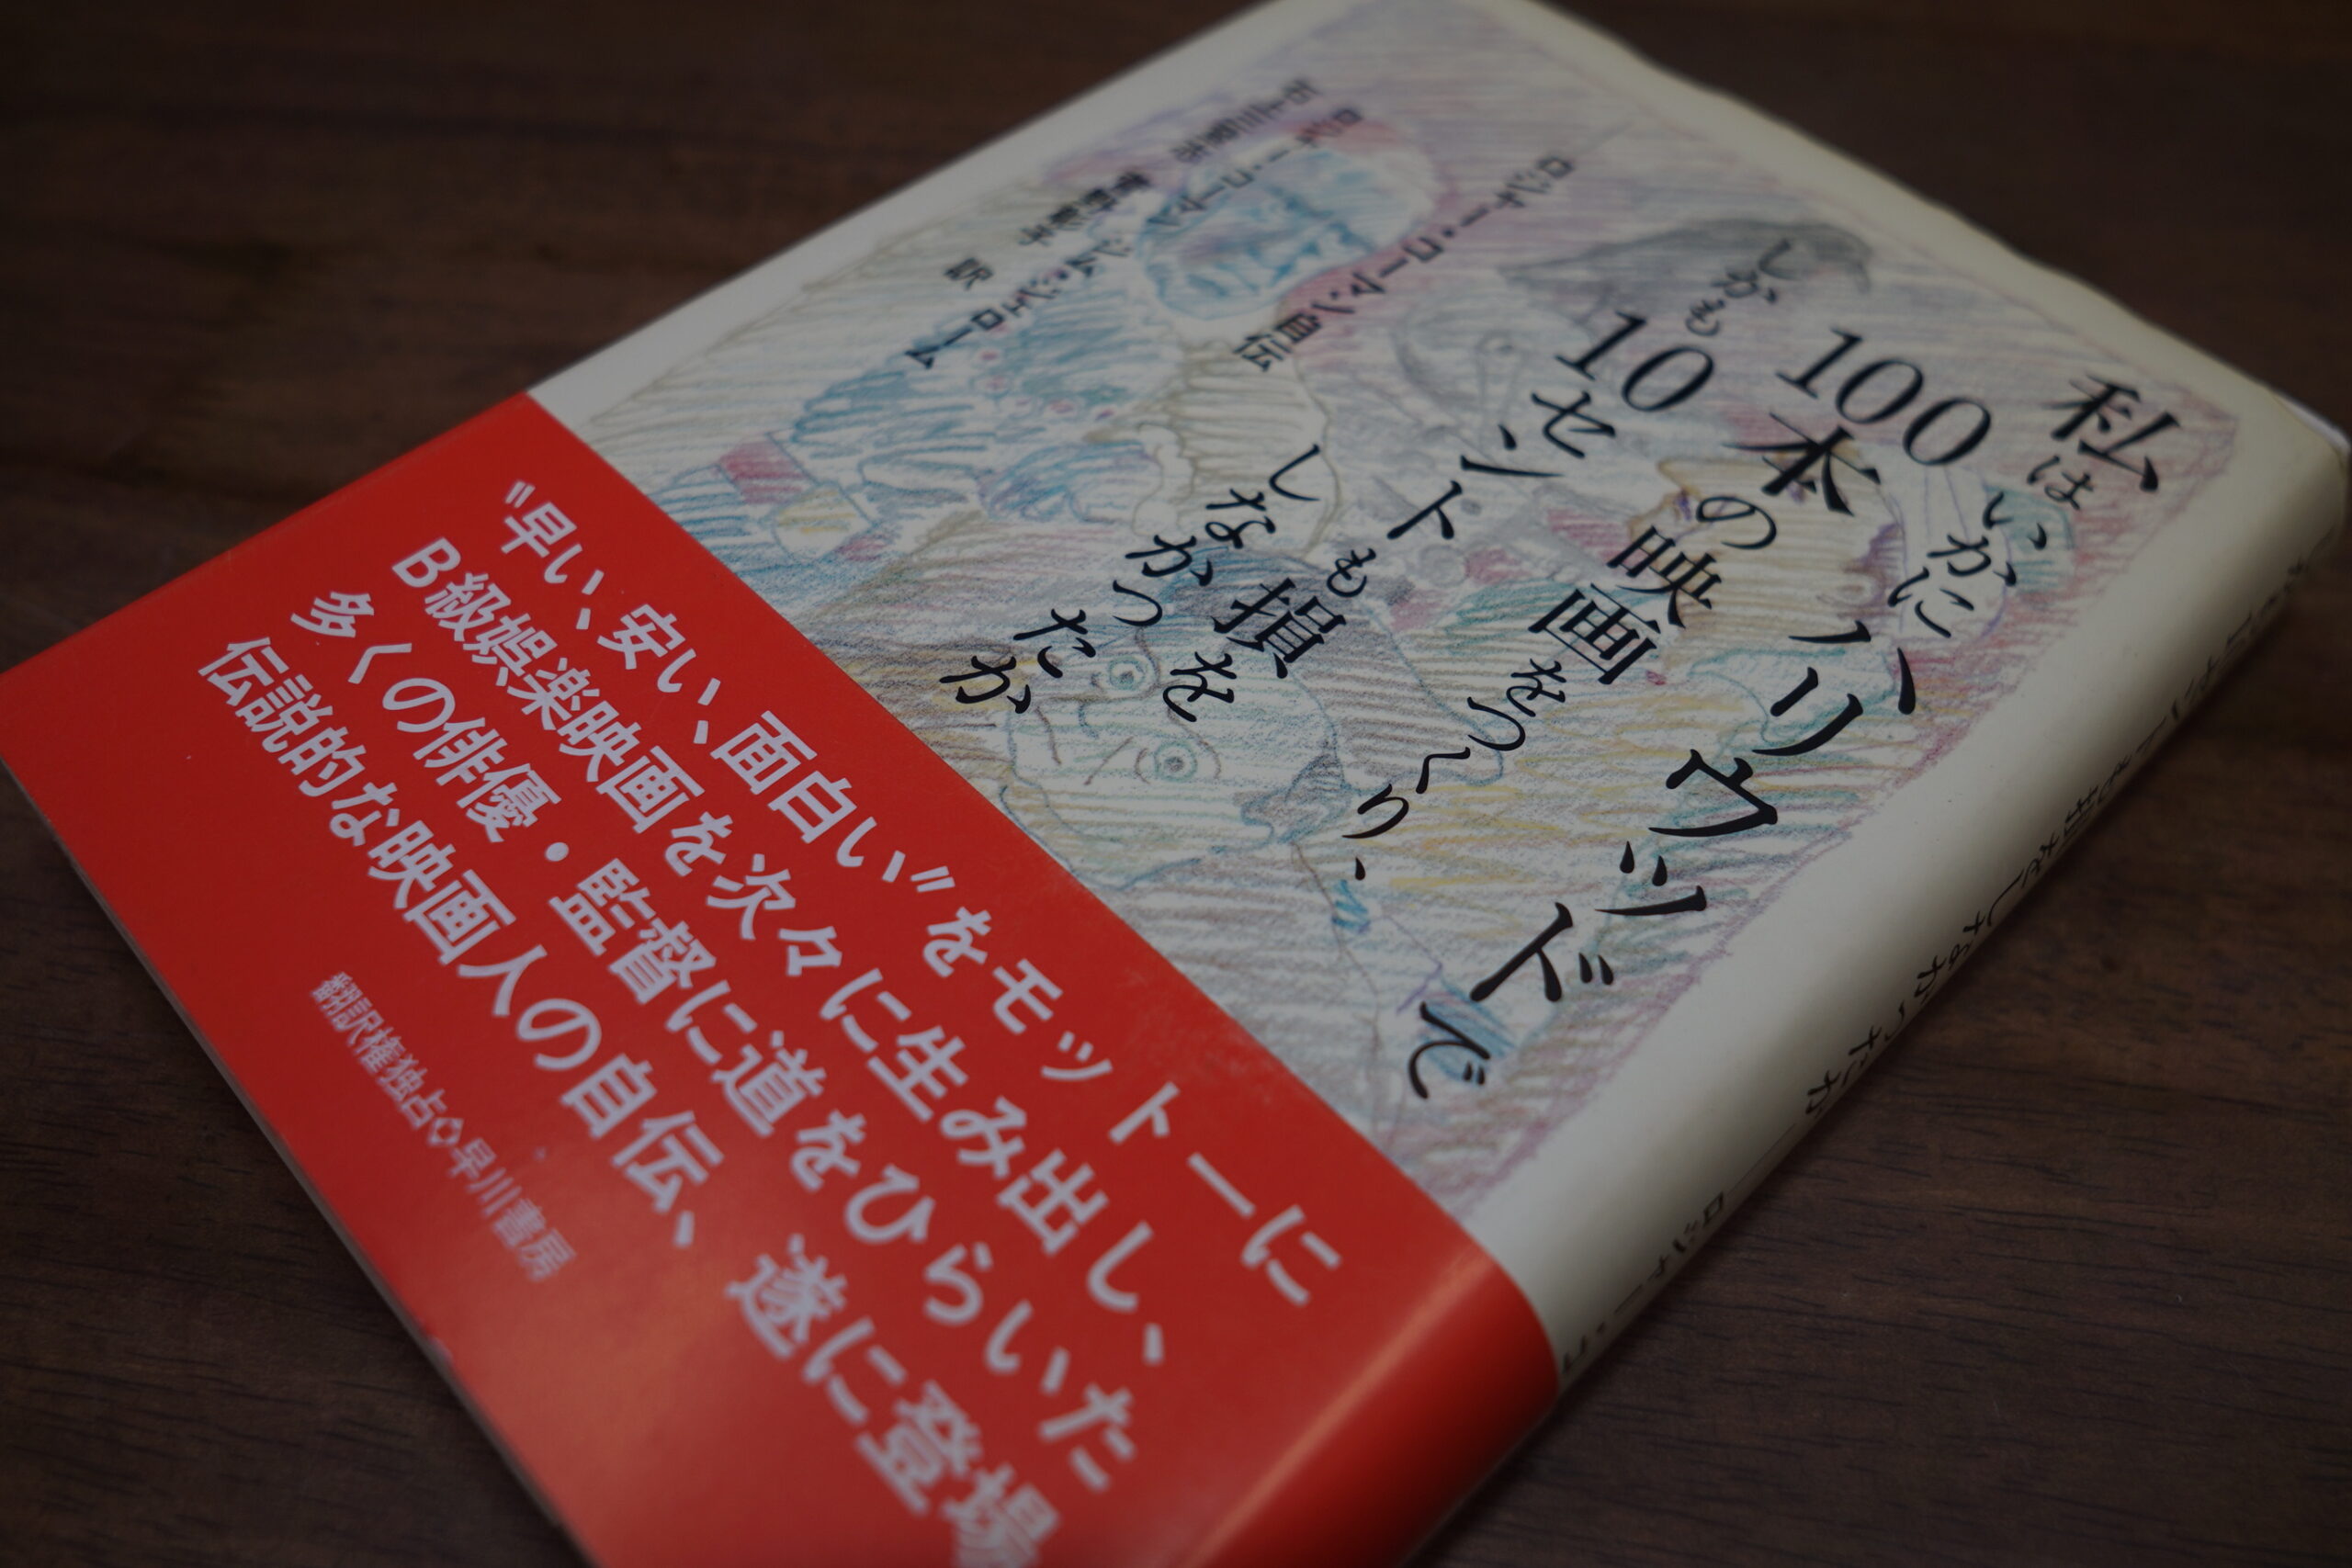 私はいかにハリウッドで
100本の映画をつくり、
しかも10セントも損を
しなかったか
ロジャー・コーマン自伝
ロジャー・コーマン ジム・ジェローム
石上三登志 菅野彰子 訳
“早い、安い、面白い”をモットーに
B級娯楽映画を次々に生み出し、
多くの俳優・監督に道をひらいた
伝説的な映画人の自伝、遂に登場
翻訳権独占◇早川書房
10セントも損をしなかったか――ロジャー・コ